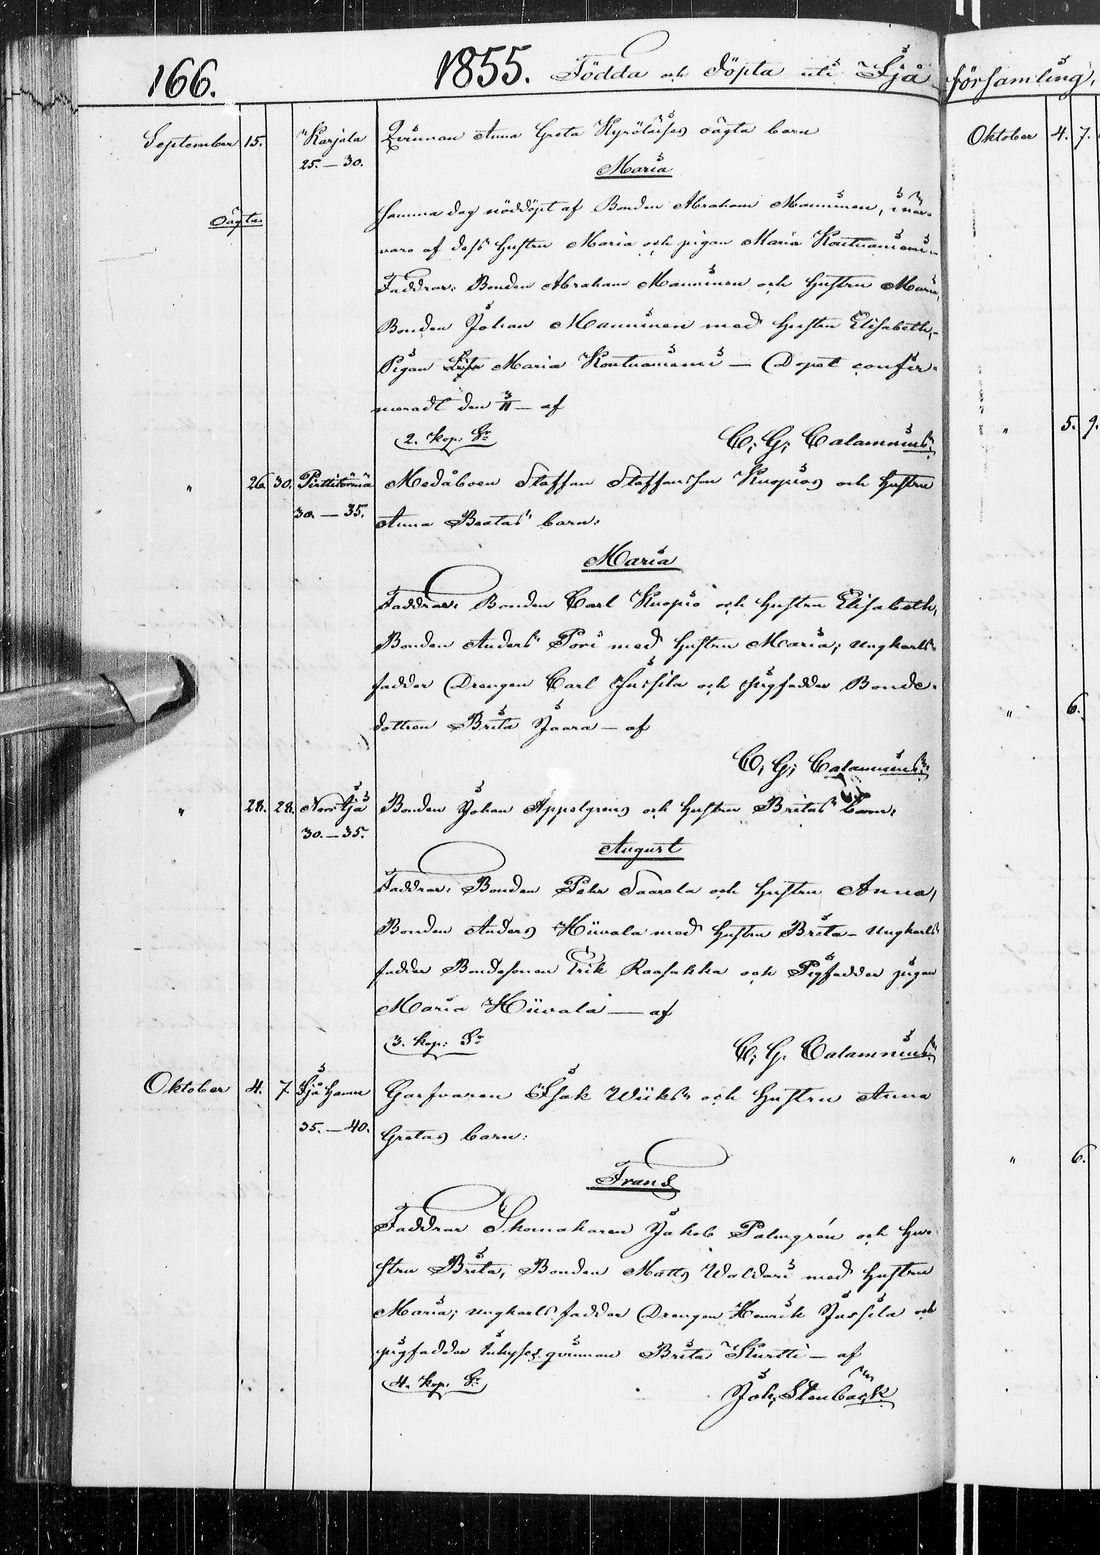 166. 1855. Födda och Döpta uti Ijå församling,
September 15. Karjala Qvinnan Anna Greta Kyröläises oägta barn
25.–30. Maria
Oägta. samma dag nöddöpt af Bonden Abraham Manninen, i när-
varo af dess hustru Maria och pigan Maria Kontuaniemi–
Faddrar: Bonden Abraham Manninen och hustru Maria,
Bonden Johan Manninen med hustru Elisabeth,–
Pigan Maria Kontuaniemi — Dopet confir-
meradt den 3/11 – af
2. kop. Sr C. G. Calamnius.
" 26. 30. Pirttitörmä Medåboen Staffan Staffansson Kuopios och hustru
30.–35. Anna Beatas barn:
Maria
Faddrar: Bonden Carl Kuopio och hustru Elisabeth,
Bonden Anders Pori med hustru Maria; ungkarls-
fadder Drengen Carl Jussila och pigfadder Bonde-
dottren Brita Jaara – af
C. G. Calamnius.
" 28. 28. Norr Ijå Bonden Johan Appelgrens och hustru Britas barn:
30.–35. August
Faddrar: Bonden Pehr Saarela och hustru Anna,
Bonden Anders Hiivala med hustru Brita– Ungkarls-
fadder Bondesonen Erik Raasakka och Pigfadder pigan
Maria Hiivala — af
3. kop: Sr C. G. Calamnius
Oktober 4. 7. Ijå Hamn Garfvaren Isak Wiiks och hustru Anna
35.–40. Gretas barn:
Frans
Faddrar Skomakaren Jakob Palmgrén och hu-
stru Brita, Bonden Matts Waldari med hustru
Maria; ungkarls fadder Drengen Henrik Jussila och
pigfadder inhyses qvinnan Brita Kurtti – af
4. kop. Sr Joh. Stenbäck
Oktober 4. 7.
" 5. 9.
" 6.
" 6.